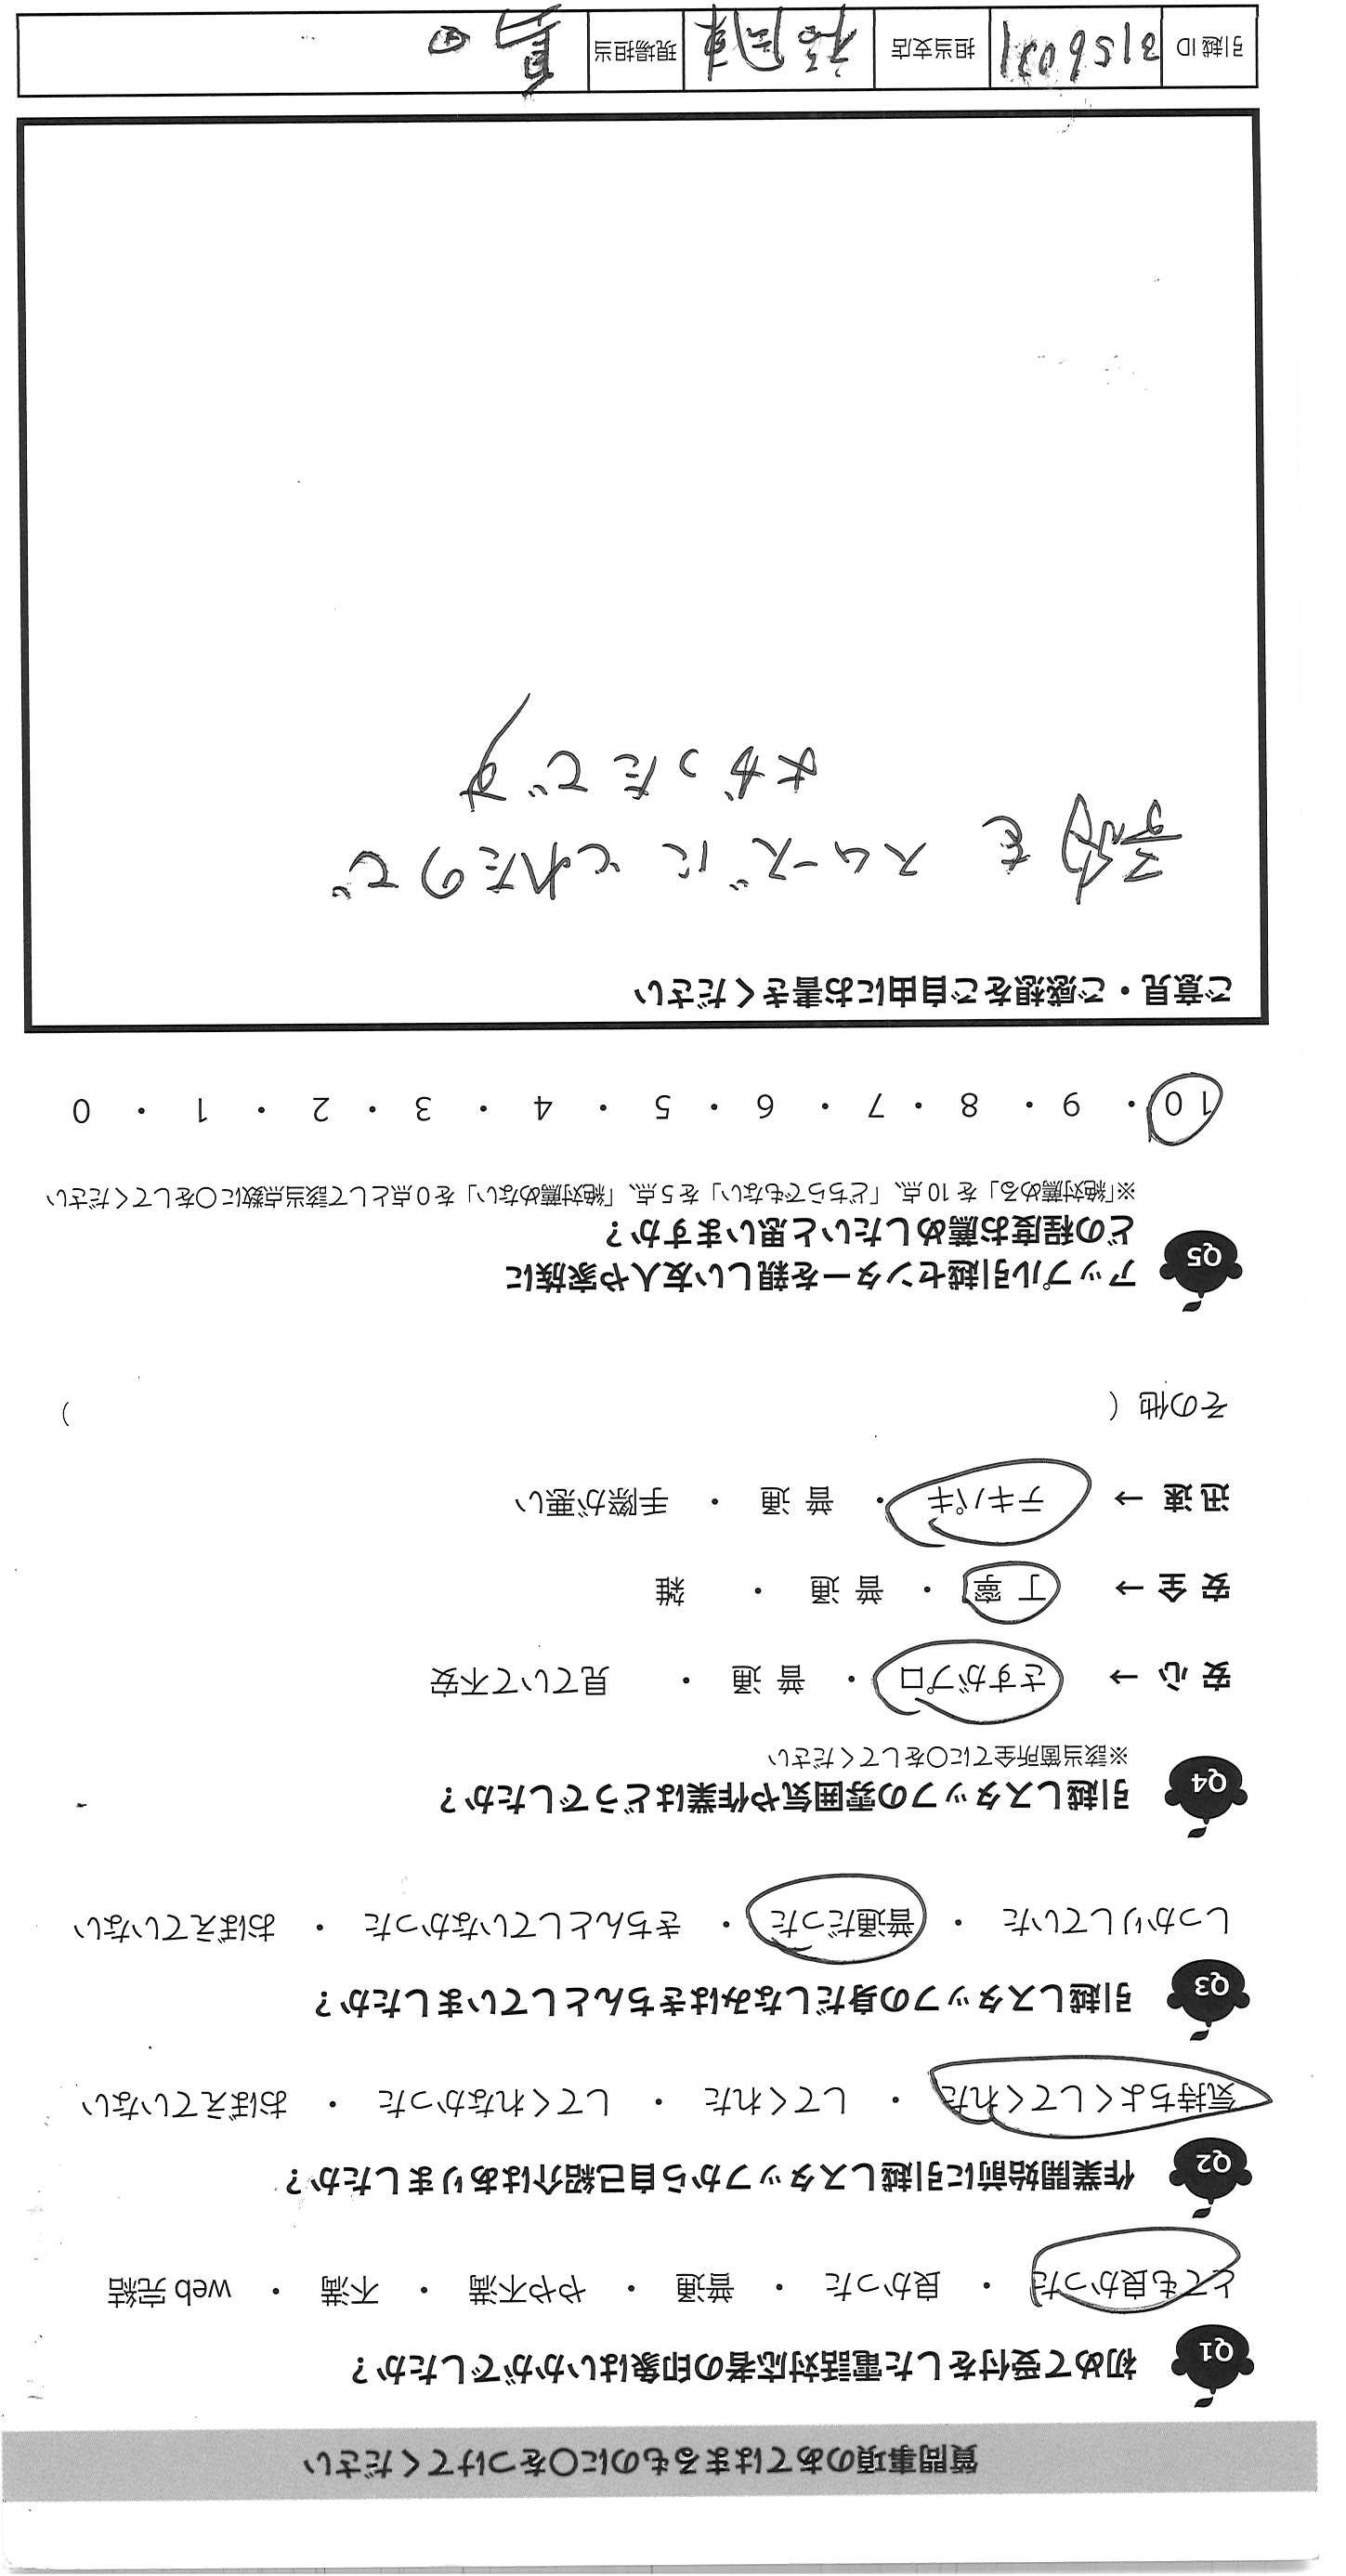 質問事項のあてはまるものに○をつけてください
Q1 初めて受付をした電話対応者の印象はいかがでしたか？
とても良かった ・ 良かった ・ 普通 ・ やや不満 ・ 不満 ・ web 完結
Q2 作業開始前に引越しスタッフから自己紹介はありましたか？
気持ちよくしてくれた ・ してくれた ・ してくれなかった ・ おぼえていない
Q3 引越しスタッフの身だしなみはきちんとしていましたか？
しっかりしていた ・ 普通だった ・ きちんとしていなかった ・ おぼえていない
Q4 引越しスタッフの雰囲気や作業はどうでしたか？
※該当箇所全てに○をしてください
安心 → さすがプロ ・ 普通 ・ 見ていて不安
安全 → 丁寧 ・ 普通 ・ 雑
迅速 → テキパキ ・ 普通 ・ 手際が悪い
その他（ ）
Q5 アップル引越センターを親しい友人や家族に
どの程度お薦めしたいと思いますか？
※「絶対薦める」を 10 点、「どちらでもない」を 5 点、「絶対薦めない」を 0 点として該当点数に○をしてください
10 ・ 9 ・ 8 ・ 7 ・ 6 ・ 5 ・ 4 ・ 3 ・ 2 ・ 1 ・ 0
ご意見・ご感想をご自由にお書きください
予約を スムーズに とれたので
よかったです
引越 ID 担当支店 福岡東 現場担当